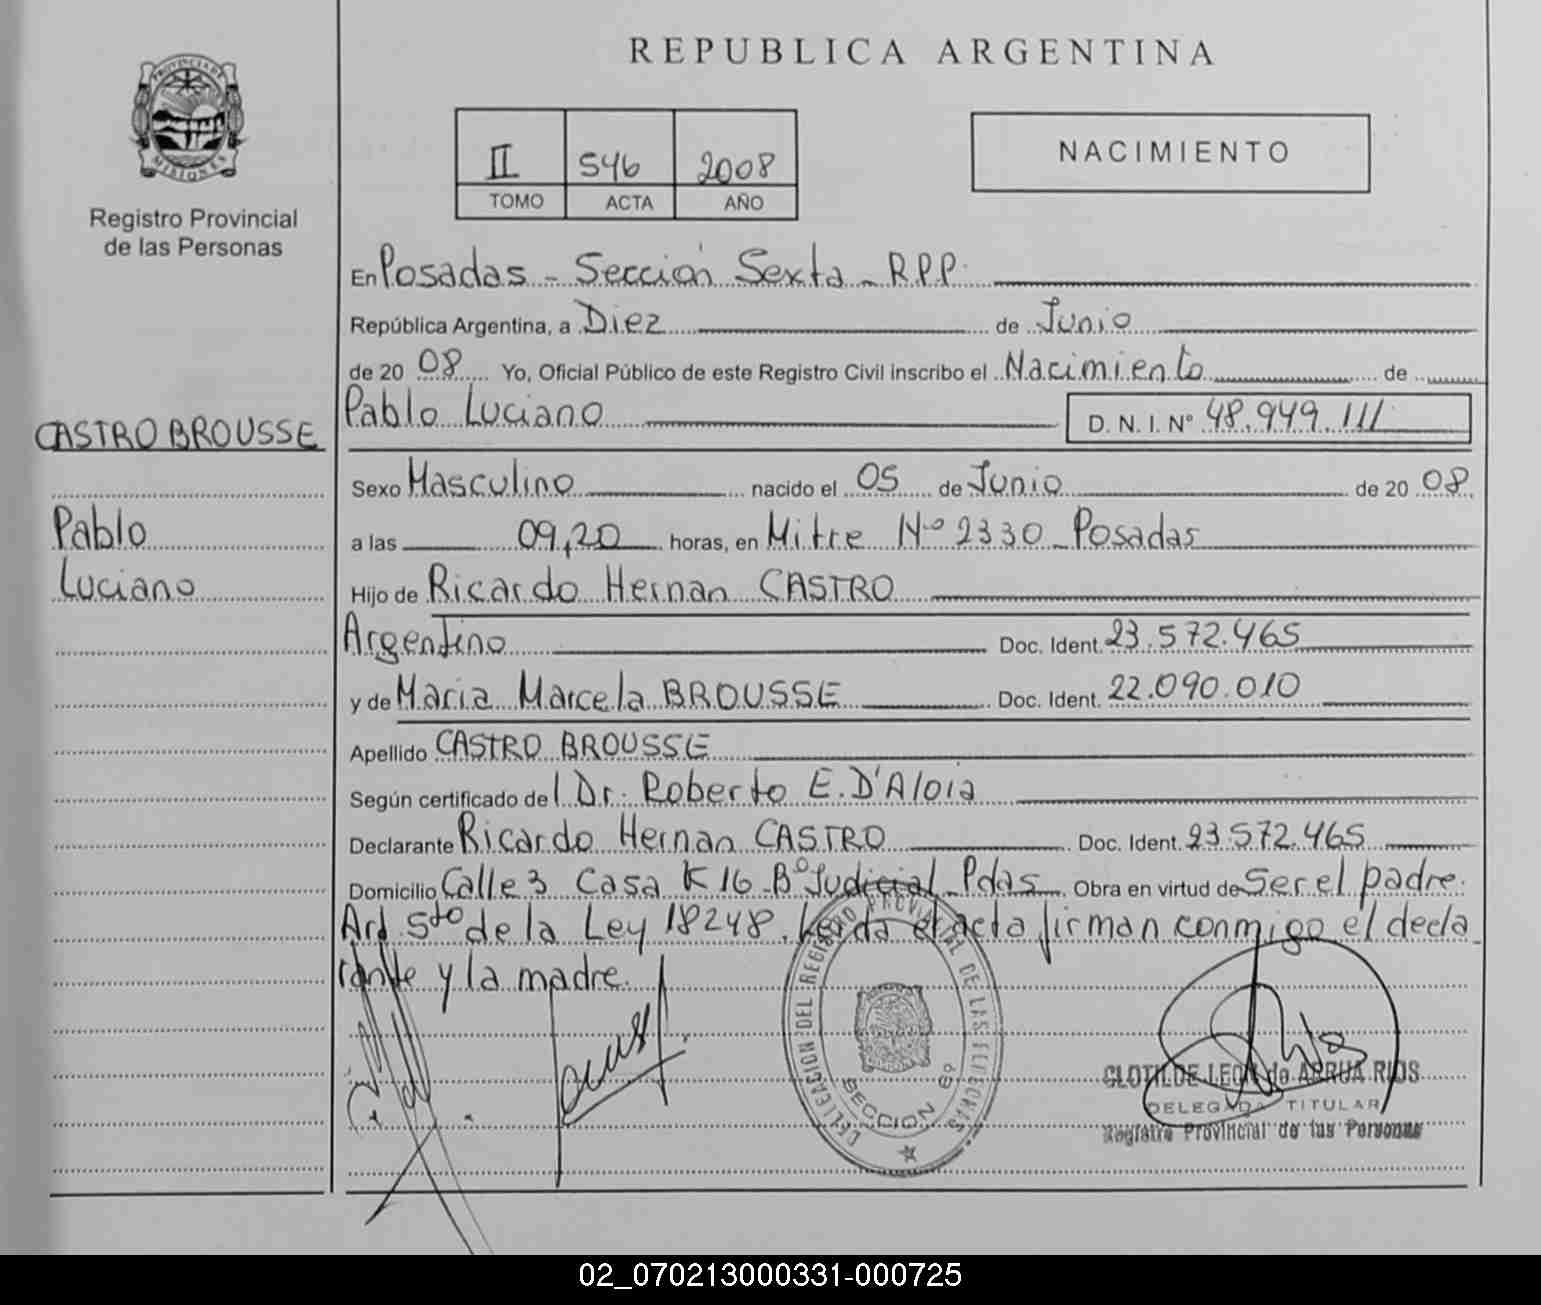 REPUBLICA ARGENTINA
PROVINCIA DE
MISIONES
Registro Provincial
de las Personas
II 546 2008
TOMO ACTA AÑO
NACIMIENTO
En Posadas - Sección Sexta - R.P.P.
República Argentina, a Diez de Junio
de 20 08 Yo, Oficial Público de este Registro Civil inscribo el Nacimiento de
Pablo Luciano D. N. I. Nº 48.949.111
CASTRO BROUSSE
Sexo Masculino nacido el 05 de Junio de 20 08
Pablo
a las 09,20 horas, en Mitre Nº 2330 - Posadas
Luciano
Hijo de Ricardo Hernan CASTRO
Argentino Doc. Ident. 23.572.465
y de Maria Marcela BROUSSE Doc. Ident. 22.090.010
Apellido CASTRO BROUSSE
Según certificado del Dr. Roberto E. D'Aloia
Declarante Ricardo Hernan CASTRO Doc. Ident. 23.572.465
Domicilio Calle 3 Casa K 16 - Bº Judicial - Pdas Obra en virtud de Ser el padre.
Art 5to de la Ley 18248. Leida el acta firman conmigo el decla
rante y la madre.
DELEGACION DEL REGISTRO PROVINCIAL DE LAS PERSONAS
SECCION 6º
CLOTILDE LEON de ARRUA RIOS
DELEGADA TITULAR
Registro Provincial de las Personas
02_070213000331-000725